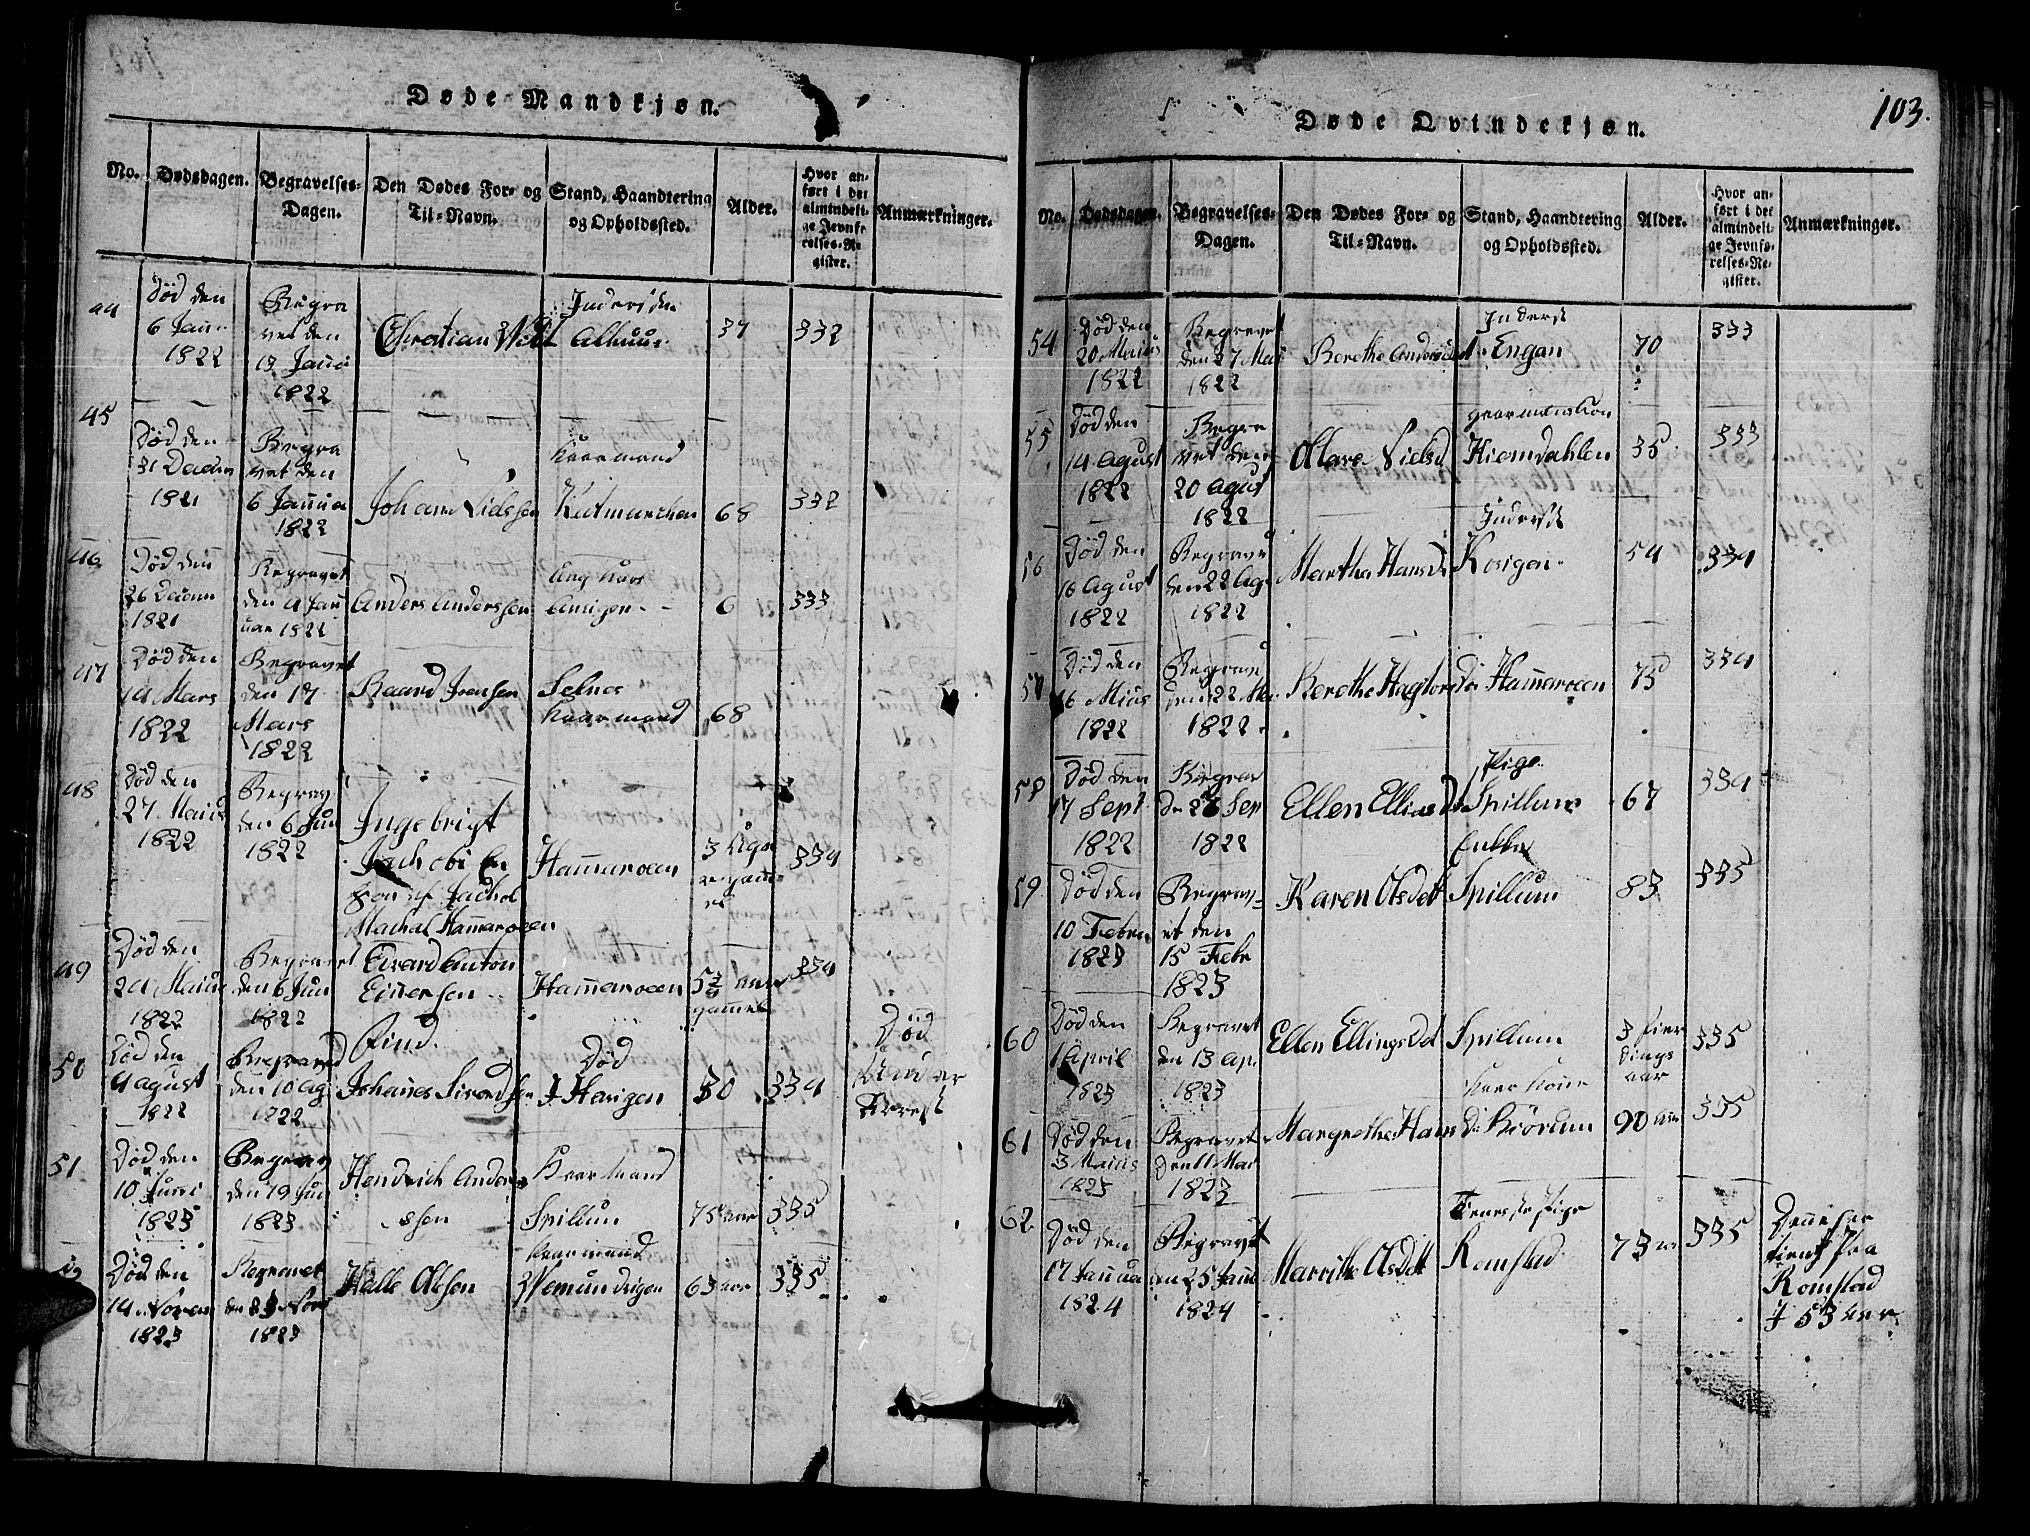 Døde Mandkjøn.
No.
Dødsdagen.
Begravelses-
Dagen.
Den Dødes For- og
Til-Navn.
Stand, Haandtering
og Opholdssted.
Alder.
Hvor an-
ført i det
almindeli-
ge Jevnfø-
relses-Re-
gister.
Anmærkninger.
44
Død den
6 Janu
1822
Begra
vet den
13 Janu
1822
Christian
37
332
45
Død den
31 Decem
1821
Begra
vet den
6 Janua
1822
Johan Nielssen
Kaarmand
68
332
46
Død den
26 Decem
1821
Begravet
den 4 Jan
uar 1822
Anders Anderssen
6
333
47
Død den
14 Mars
1822
Begravet
den 17
Mars
1822
Baard Iversen
Selnes
Kaarmand
68
48
Død den
27 Maius
1822
Begrav
den 6 Jun
1822
Ingebrigt
Jachobi En
Søn af Jachob
Machal Hamaroeen
Hamaroeen
3 Uger
gam
334
49
Død den
24 Maius
1822
Begravet
den 6 Jun
1822
Eivend Anton
Einersen
Hamaroeen
5½ aar
gammel
334
50
Død den
4 agust
1822
Begraved
den 10 Ag
1822
Find.
Johanes Sivordsen
Død
I Havigen
30
334
Død
Under
Arrest
51
Død den
10 Juni
1823
Begrav
den 19 Jun
1823
Hendrich Anders
ssen
Kaarmand
Spillum
75 aar
335
52
Død den
14 Novem
1823
Begravet
den 23 Nov
1823
Halle Olssen
Kaarmand
Wemundvigen
63 aar
335
Døde Qvindekjøn.
103.
No.
Dødsdagen.
Begravelses-
Dagen.
Den Dødes For- og
Til-Navn.
Stand, Haandtering
og Opholdssted.
Alder.
Hvor an-
ført i det
almindeli-
ge Jevnfø-
relses-Re-
gister.
Anmærkninger.
54
Død den
20 Maius
1822
Begravet
den 27 Mai
1822
Berethe Andersdat
Inderst
Engan
70
333
55
Død den
14 Agust
1822
Begra
vet den
20 Agus
1822
Olava Nielsd
Hiemdahlen
35
333
56
Død den
16 Agust
1822
Begravet
den 22 Ag
1822
Martha Hansd
Inderst
54
334
Død den
16 Mius
1822
Begravet
den 22 Mai
1822
Berethe Hagtorsd
Hamaroeen
75
334
58
Død den
17 Sept
1822
Begrav
d 26 Sep
1822
Ellen Ellins D
Pige
Spillum
67
334
59
Død den
10 Febru
1823
Begrav-
et den
15 Febr
1823
Karen Olsdat
Enkke
Spillum
83
335
60
Død den
1 April
1823
Begravet
den 13 ap.
1823
Ellen Ellingsdat
Spillum
3 fier
dings
aar
335
61
Død den
3 Maius
1823
Begravet
den 11 Mai
1823
Margrethe Hans D
Kaar Kone
Biörum
90 aar
335
62
Død den
17 Janua
1824
Begravet
den 25 Janu
1824
Marrithe Olsdatt
Tieneste Pige
Romstad
73
335
Denne har
tient Paa
Romstad
I 53 aar